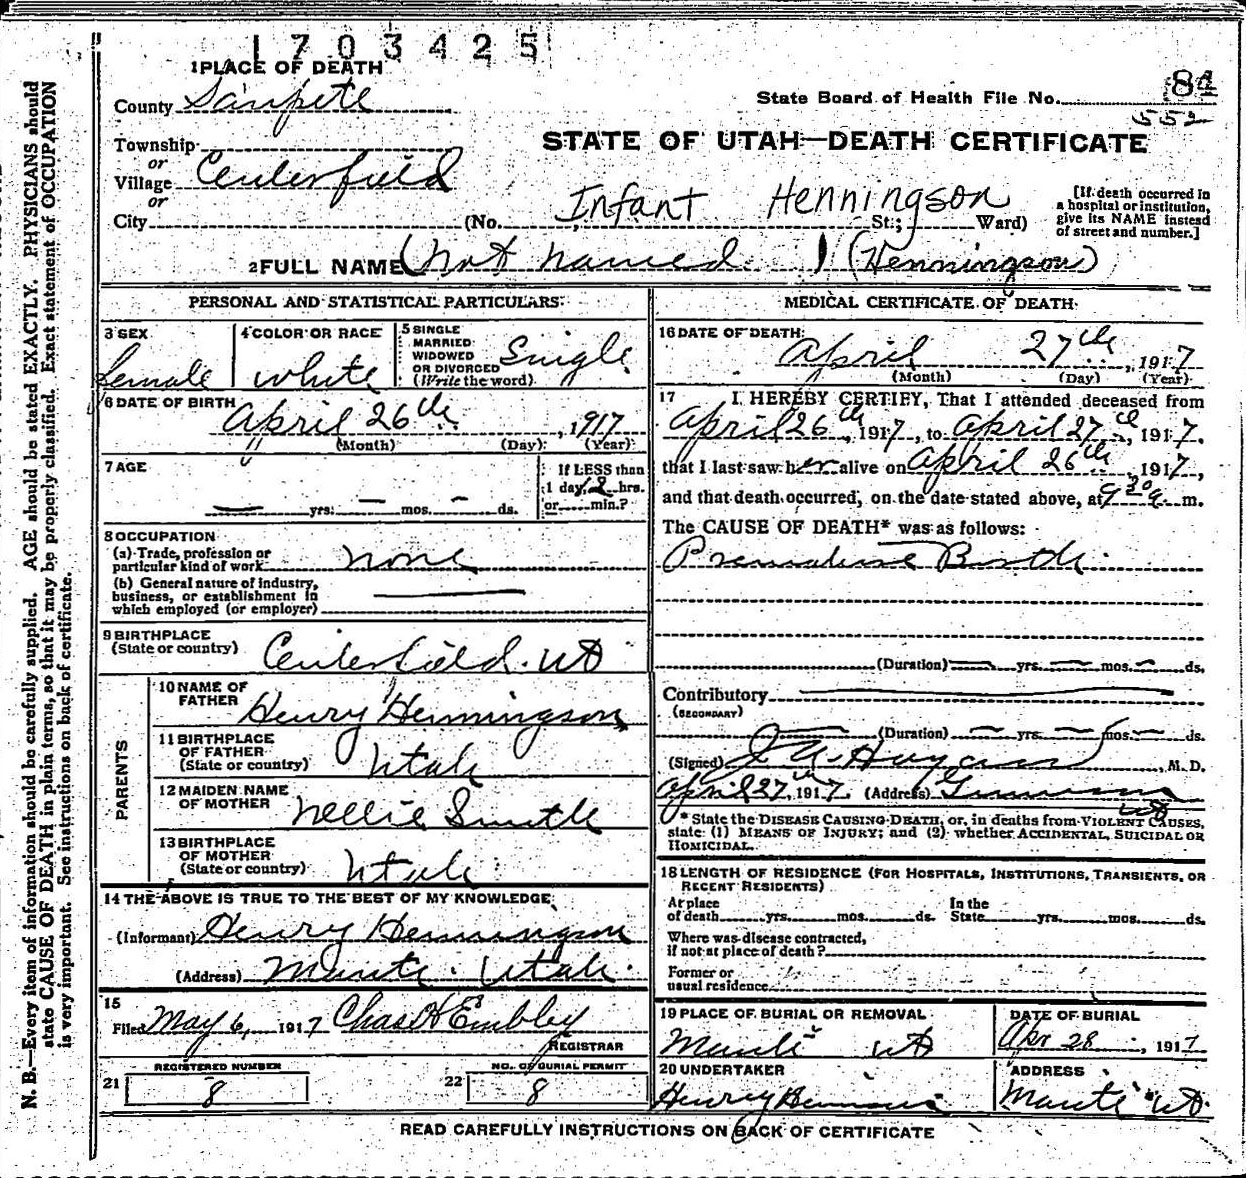 1703425
1 PLACE OF DEATH
County Sanpete
State Board of Health File No. 84
552
STATE OF UTAH—DEATH CERTIFICATE
Township
or
Village Centerfield
or
City (No. Infant Henningson St.; Ward)
[If death occurred in a hospital or institution, give its NAME instead of street and number.]
2 FULL NAME (Not named) (Henningson)
PERSONAL AND STATISTICAL PARTICULARS
3 SEX
female
4 COLOR OR RACE
white
5 SINGLE
MARRIED
WIDOWED
OR DIVORCED
(Write the word)
Single
6 DATE OF BIRTH
April 26th, 1917
(Month) (Day) (Year)
7 AGE
— yrs. — mos. — ds.
If LESS than
1 day, 12 hrs.
or min.?
8 OCCUPATION
(a) Trade, profession or
particular kind of work none
(b) General nature of industry,
business, or establishment in
which employed (or employer)
9 BIRTHPLACE
(State or country) Centerfield. Ut
PARENTS
10 NAME OF
FATHER Henry Henningson
11 BIRTHPLACE
OF FATHER
(State or country) Utah
12 MAIDEN NAME
OF MOTHER Nellie Smith
13 BIRTHPLACE
OF MOTHER
(State or country) Utah
14 THE ABOVE IS TRUE TO THE BEST OF MY KNOWLEDGE
(Informant) Henry Henningson
(Address) Manti. Utah.
15
Filed May 6, 1917 Chas H Embley
REGISTRAR
21 REGISTERED NUMBER
8
22 NO. OF BURIAL PERMIT
8
MEDICAL CERTIFICATE OF DEATH
16 DATE OF DEATH:
April 27th, 1917
(Month) (Day) (Year)
17 I HEREBY CERTIFY, That I attended deceased from
April 26th, 1917, to April 27th, 1917.
that I last saw her alive on April 26th, 1917,
and that death occurred, on the date stated above, at 9 30 a m.
The CAUSE OF DEATH* was as follows:
Premature Birth.
(Duration) — yrs. — mos. — ds.
Contributory
(SECONDARY)
(Duration) — yrs. — mos. — ds.
(Signed) , M. D.
April 27th, 1917. (Address) Gunnison
Ut
* State the DISEASE CAUSING DEATH, or, in deaths from VIOLENT CAUSES,
state (1) MEANS OF INJURY; and (2) whether ACCIDENTAL, SUICIDAL OR
HOMICIDAL.
18 LENGTH OF RESIDENCE (FOR HOSPITALS, INSTITUTIONS, TRANSIENTS, OR
RECENT RESIDENTS)
At place In the
of death yrs. mos. ds. State yrs. mos. ds.
Where was disease contracted,
if not at place of death?
Former or
usual residence
19 PLACE OF BURIAL OR REMOVAL
Manti Ut
DATE OF BURIAL
Apr 28, 1917
20 UNDERTAKER
Henry
ADDRESS
Manti Ut.
READ CAREFULLY INSTRUCTIONS ON BACK OF CERTIFICATE
N. B.—Every item of information should be carefully supplied. AGE should be stated EXACTLY. PHYSICIANS should
state CAUSE OF DEATH in plain terms, so that it may be properly classified. Exact statement of OCCUPATION
is very important. See instructions on back of certificate.